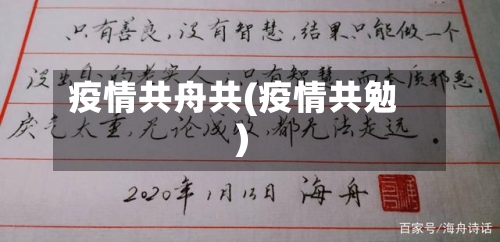 只有善良，没有智慧，结果只能做一个
没出息的老实人；只有智慧，而本质邪恶，
疫情共舟共(疫情共勉
)
戾气太重，无论成败，都无法走远。
2020年1月13日 海舟
百家号/海舟诗话